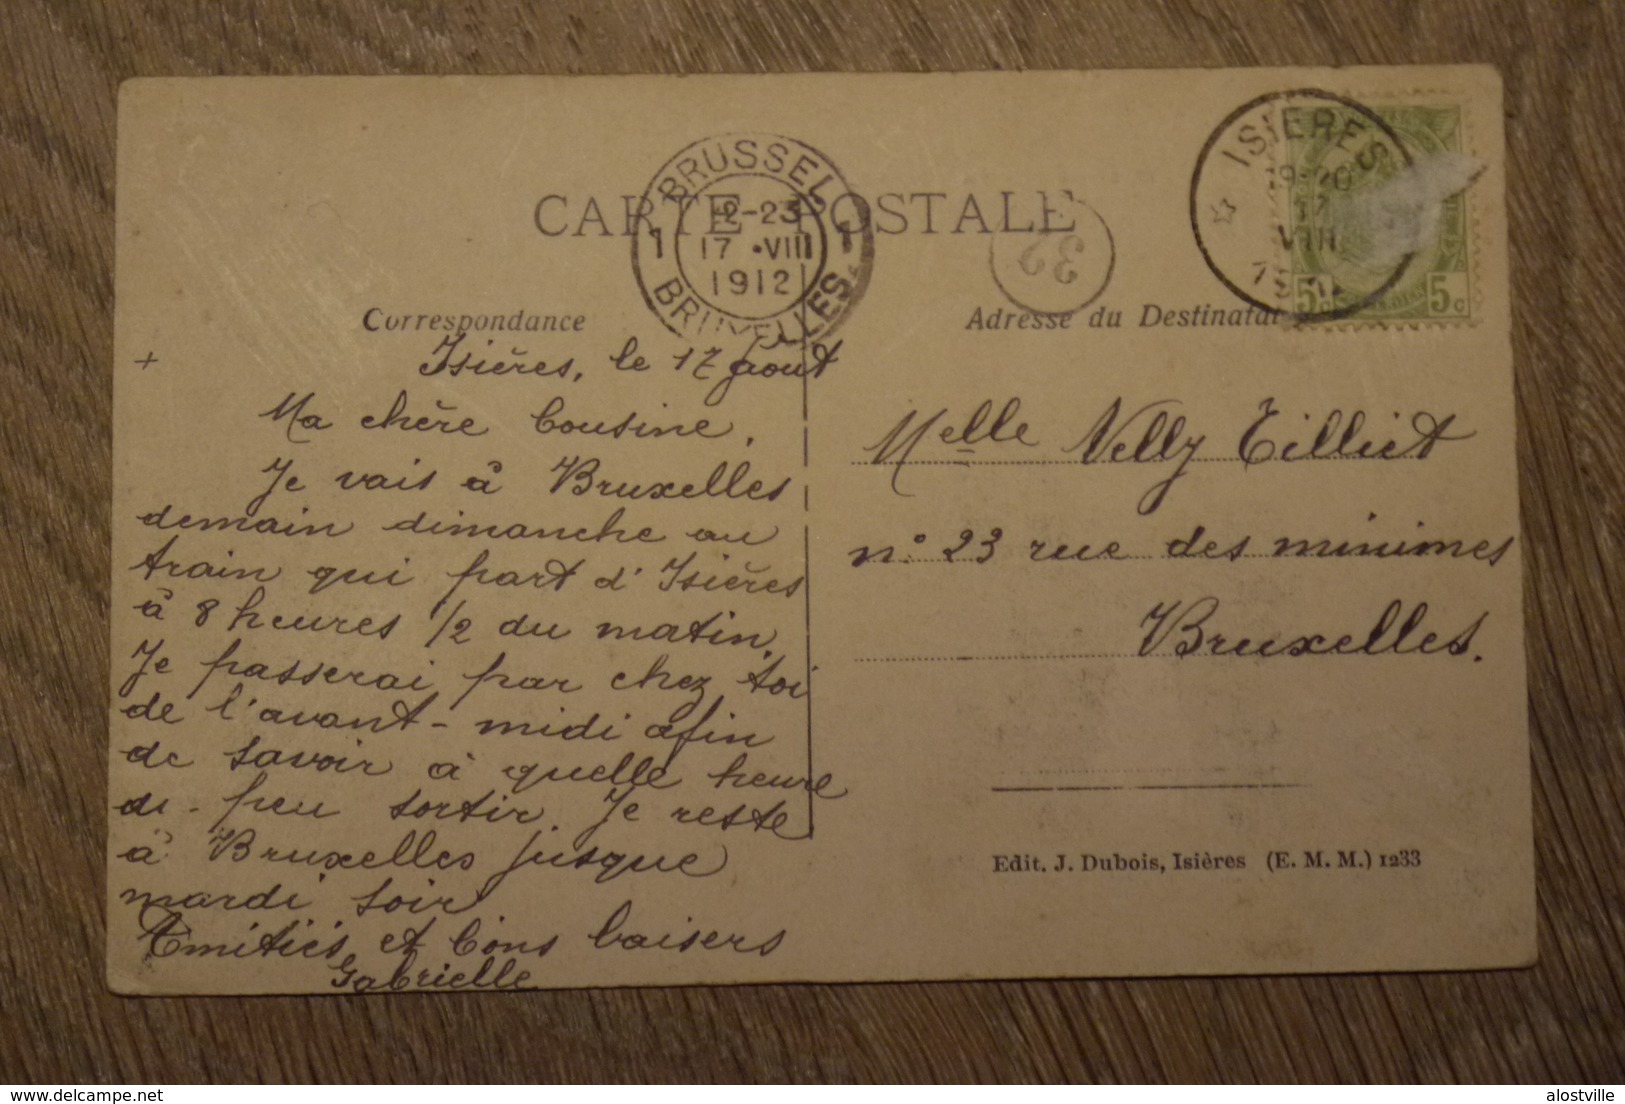 CARTE POSTALE
BRUSSEL
1 2-23 1
17 •VIII
1912
BRUXELLES
32
ISIÈRES
9-20
17
VIII
5c 5c
Correspondance
Adresse du Destinatai
+
Isières, le 17 Août
Ma chère Cousine,
Je vais à Bruxelles
demain dimanche au
train qui part d'Isières
à 8 heures 1/2 du matin.
Je passerai par chez toi
de l'avant-midi afin
de savoir à quelle heure
di peu sortir. Je reste
à Bruxelles jusque
mardi soir
Amitiés et bons baisers
Gabrielle
Melle Nelly Tilliet
n° 23 rue des minimes
Bruxelles.
Edit. J. Dubois, Isières (E. M. M.) 1233
delcampe.net
alostville